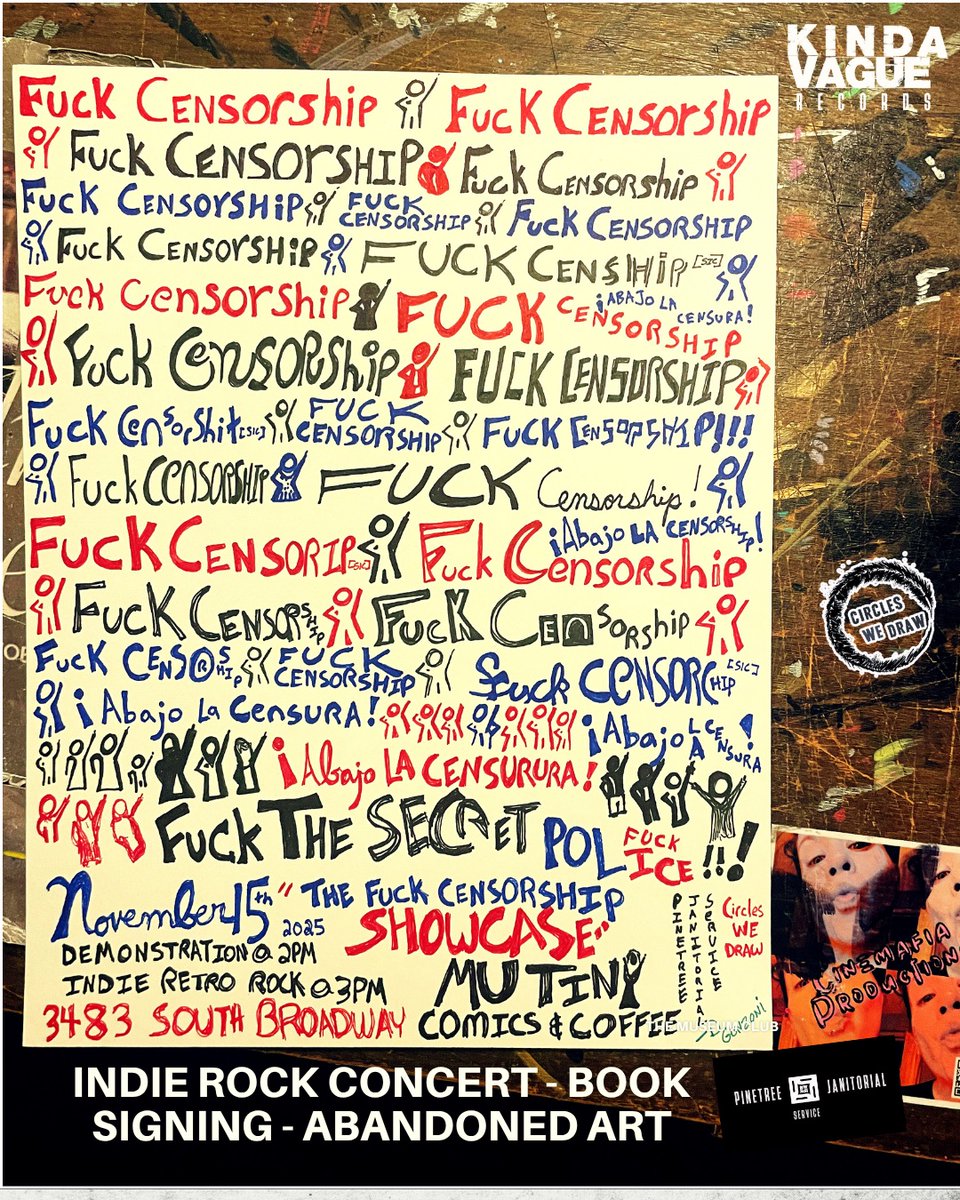 KINDA
VAGUE
RECORDS
Fuck Censorship Fuck Censorship
Fuck Censorship Fuck Censorship
Fuck Censorship Fuck Censorship Fuck Censorship
Fuck Censorship Fuck Cenship [sic]
Fuck Censorship Fuck Censorship ¡Abajo la Censura!
Fuck Censorship Fuck Censorship
Fuck Censorshit [sic] Fuck Censorship Fuck Censorship!!!
Fuck Censorship Fuck Censorship!
Fuck Censorip [sic] Fuck Censorship ¡Abajo la Censorship!
Fuck Censorship Fuck Censorship
Fuck Cens®ship Fuck Censorship Fuck Censorchip [sic]
¡Abajo la Censura! ¡Abajo la Censura!
¡Abajo la Censurura!
Fuck The Secret Police !!!
Fuck ICE
November 15th 2025 "The Fuck Censorship
Showcase"
Demonstration @ 2PM
Indie Retro Rock @ 3PM
Mutiny
3483 South Broadway
Comics & Coffee
Pinetree
Janitorial
Service
Circles
We
Draw
THE MUSEUM CLUB
CIRCLES
WE DRAW
Cinemafia
Production
PINETREE JANITORIAL
SERVICE
INDIE ROCK CONCERT - BOOK
SIGNING - ABANDONED ART